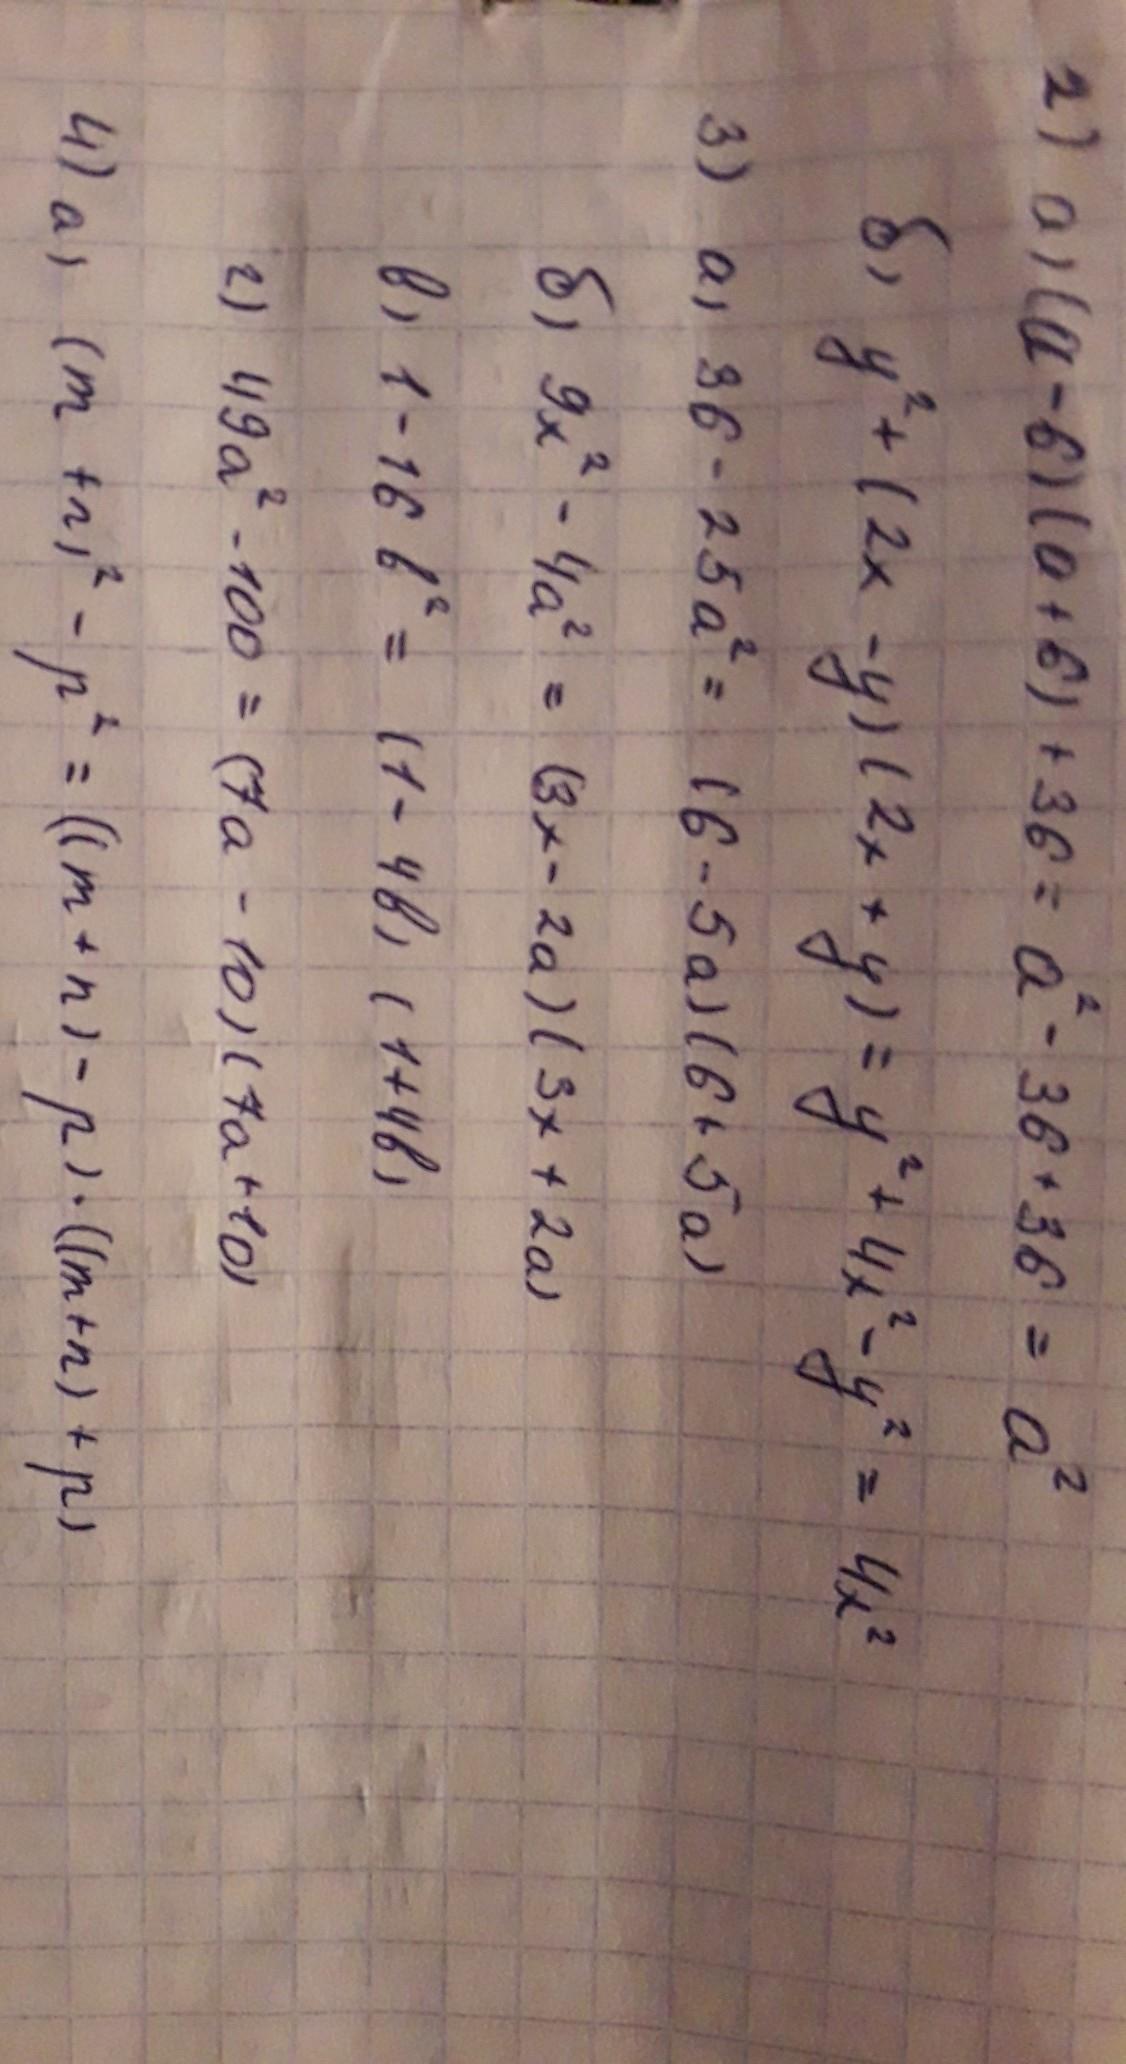 2) а) (a-6)(a+6)+36 = a²-36+36 = a²
б) y²+(2x-y)(2x+y) = y²+4x²-y² = 4x²
3) а) 36-25a² = (6-5a)(6+5a)
б) 9x²-4a² = (3x-2a)(3x+2a)
в) 1-16b² = (1-4b)(1+4b)
г) 49a²-100 = (7a-10)(7a+10)
4) а) (m+n)²-p² = ((m+n)-p)·((m+n)+p)